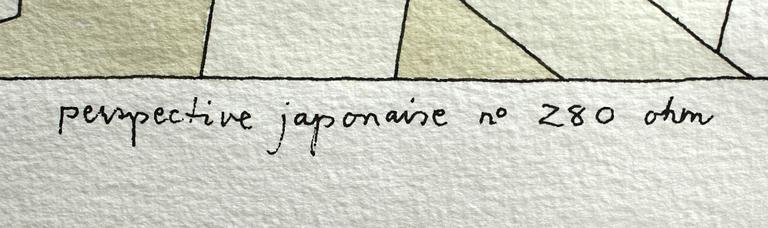 perspective japonaise nº 280 ohm